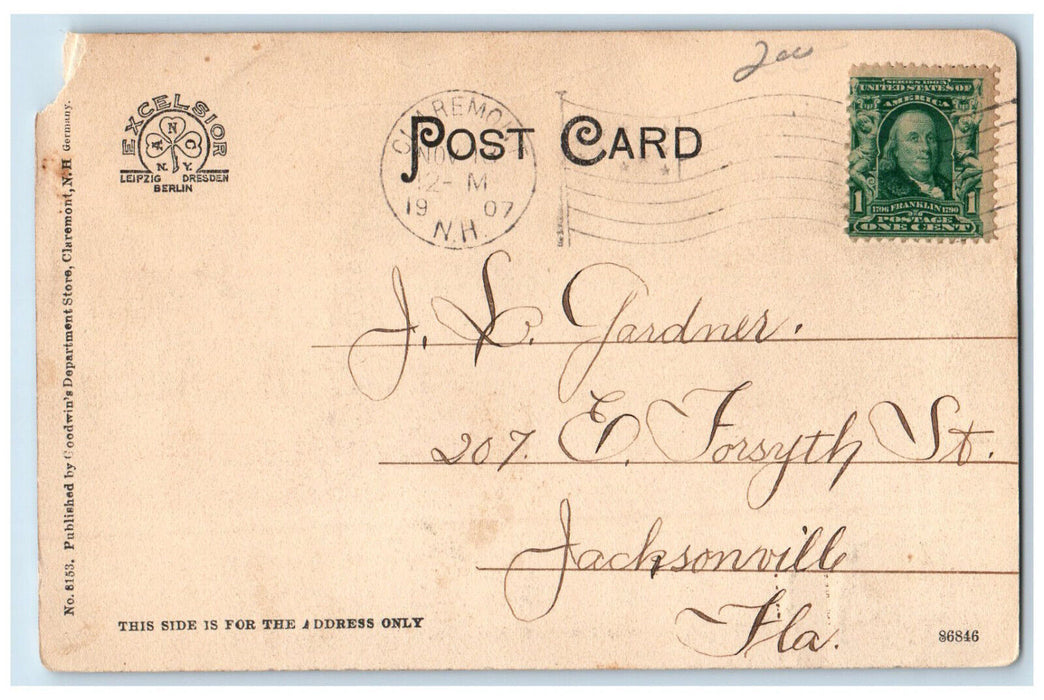 200
EXCELSIOR
A N C
N. Y.
LEIPZIG DRESDEN
BERLIN
CLAREMONT
NOV
12- M
19 07
N.H.
POST CARD
SERIES 1902
UNITED STATES OF
AMERICA
1706 FRANKLIN 1790
1 POSTAGE 1
ONE CENT
J. L. Gardner.
207. E. Forsyth St.
Jacksonville
Fla.
No. 8153. Published by Goodwin's Department Store, Claremont, N.H Germany.
THIS SIDE IS FOR THE ADDRESS ONLY
86846